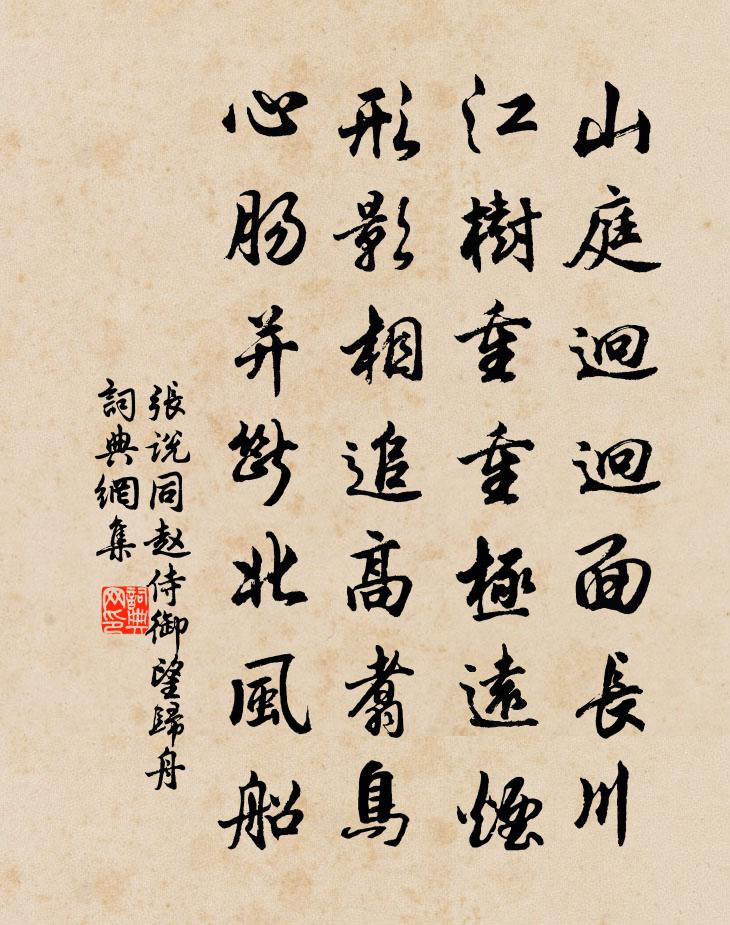 山庭迥迥面長川
江樹重重極遠煙
形影相追高翥鳥
心肠并斷北風船
張说同赵侍御望歸舟
詞典網集
詞典
网印